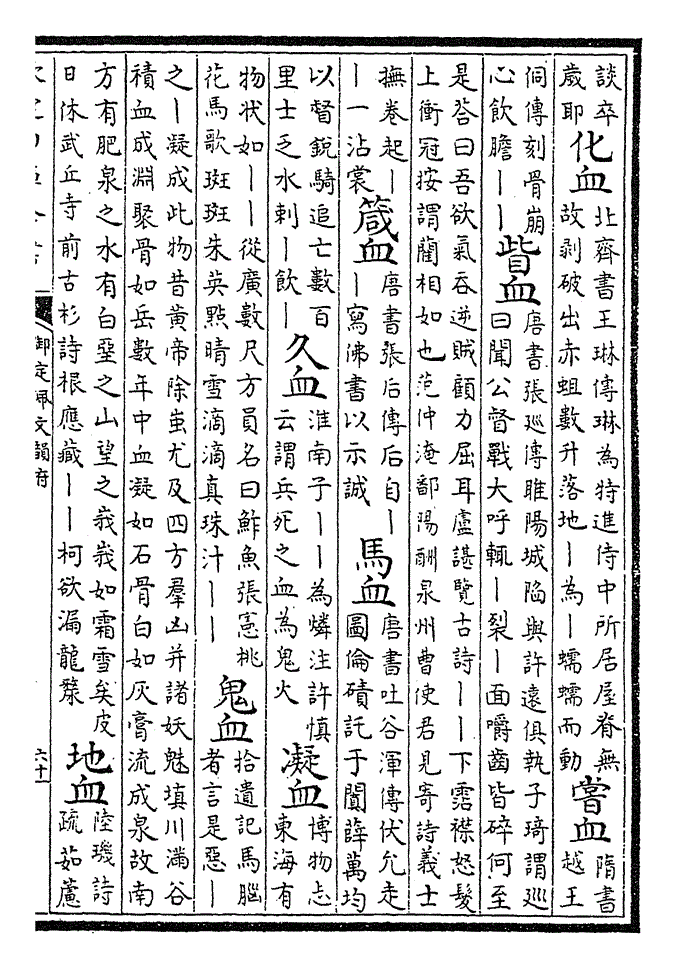 談卒
歲耶
化血
北齊書王琳傳琳為特進侍中所居屋脊無
故剥破出赤蛆數升落地丨為丨蠕蠕而動
嘗血
隋書
越王
侗傳刻骨崩
心飲膽丨丨
眥血
唐書張巡傳睢陽城陷與許遠俱執子琦謂巡
曰聞公督戰大呼輒丨裂丨面嚼齒皆碎何至
是荅曰吾欲氣吞逆賊顧力屈耳盧諶覽古詩丨丨下霑襟怒髮
上衝冠按謂藺相如也范仲淹鄱陽酬泉州曹使君見寄詩義士
撫卷起丨
丨一沾裳
箴血
唐書張后傳后自丨
丨寫佛書以示誠
馬血
唐書吐谷渾傳伏允走
圖倫磧託于闐薛萬均
以督銳騎追亡數百
里士乏水刺丨飲丨
久血
淮南子丨丨為燐注許慎
云謂兵死之血為鬼火
凝血
博物志
東海有
物狀如丨丨從廣數尺方員名曰鮓魚張憲桃
花馬歌斑斑朱英點晴雪滴滴真珠汁丨丨
鬼血
拾遺記馬腦
者言是惡丨
之丨凝成此物昔黃帝除蚩尤及四方羣凶并諸妖魅填川滿谷
積血成淵聚骨如岳數年中血凝如石骨白如灰膏流成泉故南
方有肥泉之水有白堊之山望之峩峩如霜雪矣皮
日休武丘寺前古杉詩根應藏丨丨柯欲漏龍漦
地血
陸璣詩
疏茹藘
御定佩文韻府